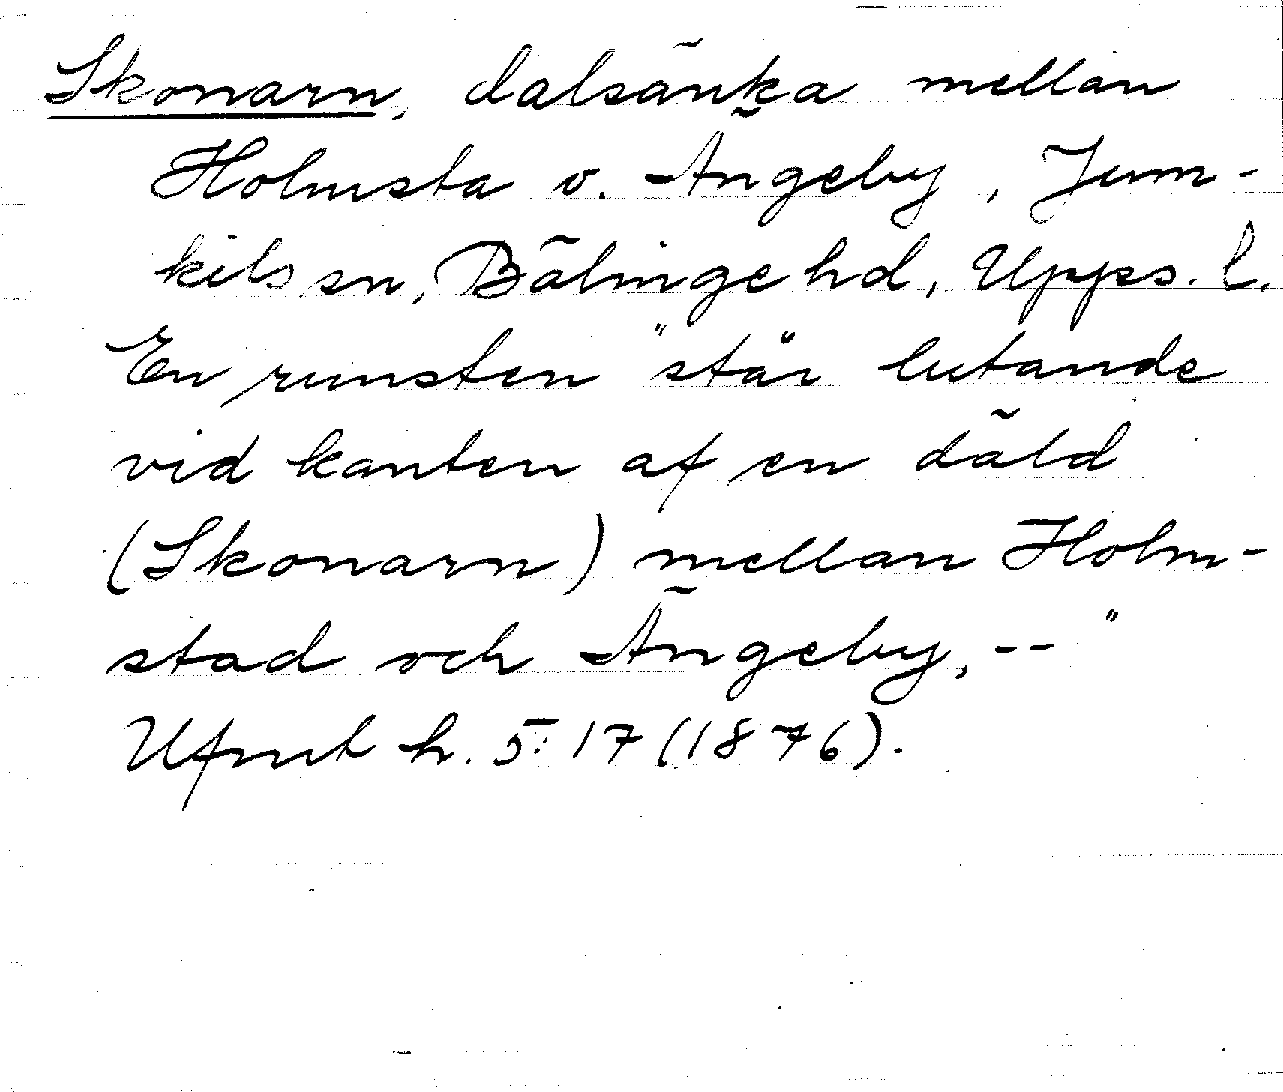 Skonarn, dalsänka mellan
Holmsta o. Ängeby, Jum-
kils sn, Bälinge hd, Upps. l.
En runsten "står lutande
vid kanten af en däld
(Skonarn) mellan Holm-
stad och Ängeby, --"
Ufmt h. 5: 17 (1876).